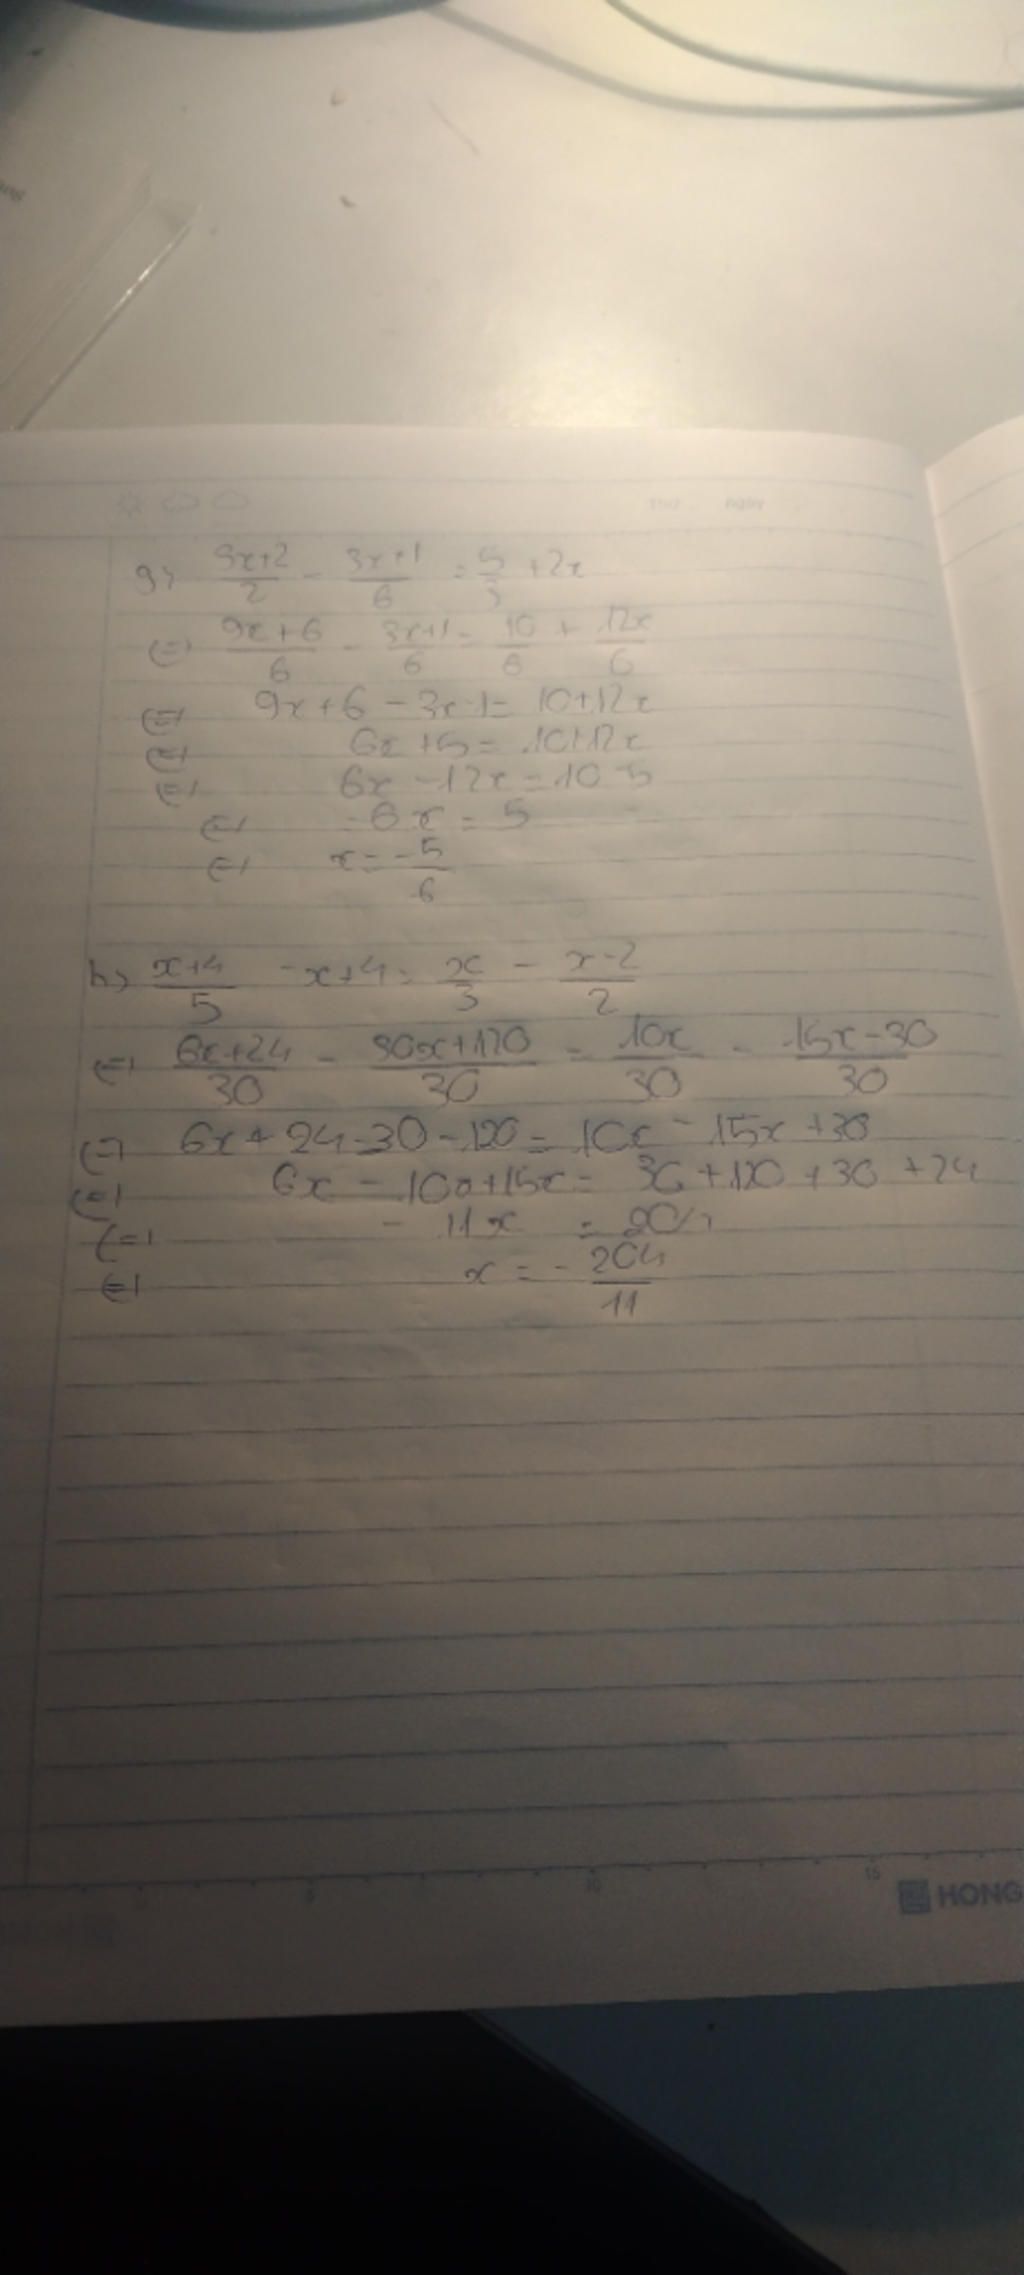 g) (3x+2)/2 - (3x+1)/6 = 5/3 + 2x
(=) (9x+6)/6 - (3x+1)/6 = 10/6 + 12x/6
(=) 9x+6 - 3x-1 = 10+12x
(=) 6x+5 = 10+12x
(=) 6x - 12x = 10-5
(=) -6x = 5
(=) x = -5/6
h) (x+4)/5 - x+4 = x/3 - (x-2)/2
(=) (6x+24)/30 - (30x+120)/30 = 10x/30 - (15x-30)/30
(=) 6x+24-30-120 = 10x - 15x+30
(=) 6x - 10x+15x = 30+120+30+24
(=) - 11x = 204
(=) x = - 204/11
5 10 15
HONG